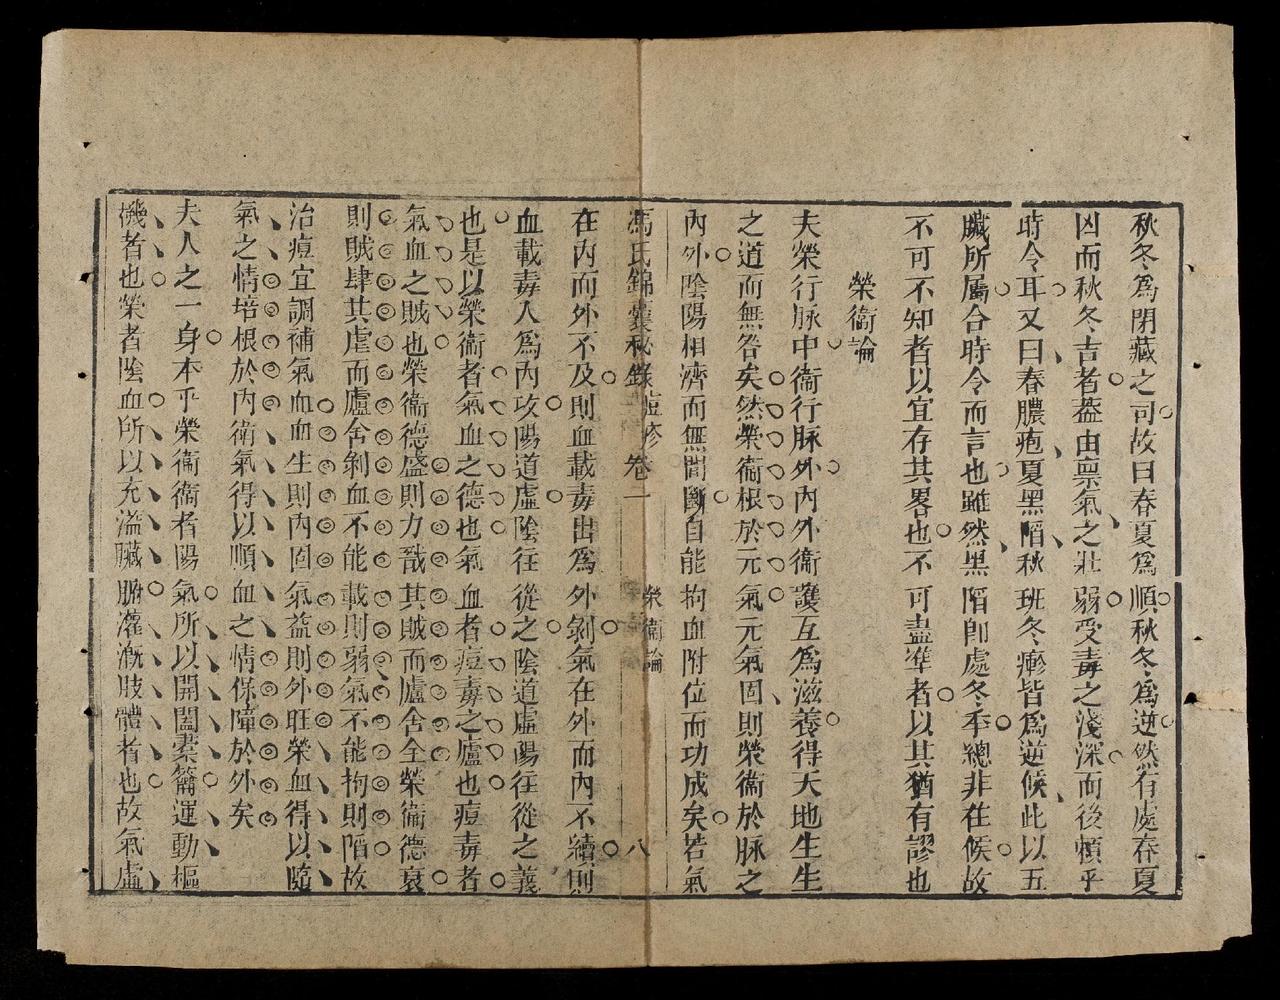 秋冬爲閉藏之司故曰春夏爲順秋冬爲逆然有處春夏
凶而秋冬吉者葢由禀氣之壯弱受毒之淺深而後頼乎
時令耳又曰春膿疱夏黑陷秋班冬瘮皆爲逆候此以五
臟所屬合時令而言也雖然黑陷卽處冬季總非在候故
不可不知者以宜存其畧也不可盡準者以其猶有謬也
榮衞論
夫榮行脉中衞行脉外內外衞護互爲滋養得天地生生
之道而無咎矣然榮衞根於元氣元氣固則榮衞於脉之
內外陰陽相濟而無間斷自能拘血附位而功成矣若氣
馮氏錦囊秘錄 痘疹 卷一 榮衞論 八
在內而外不及則血載毒出爲外剝氣在外而內不續則
血載毒人爲內攻陽道虛陰往從之陰道虛陽往從之義
也是以榮衞者氣血之德也氣血者痘毒之廬也痘毒者
氣血之賊也榮衞德盛則力戡其賊而廬舍全榮衞德衰
則賊肆其虐而廬舍剝血不能載則弱氣不能拘則陷故
治痘宜調補氣血血生則內固氣益則外旺榮血得以隨
氣之情培根於內衞氣得以順血之情保障於外矣
夫人之一身本乎榮衞衞者陽氣所以開闔橐籥運動樞
機者也榮者陰血所以充溢臟腑灌漑肢體者也故氣虛